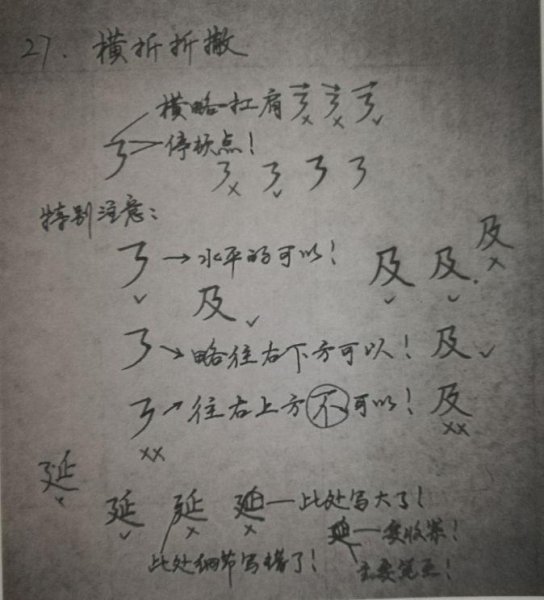 27. 横折折撇
横略扛肩
停顿点！
特别注意：
→水平的可以！
及 及 及
及
→略往右下方可以！ 及
→往右上方不可以！ 及
延
延 延 延 —此处写大了！
延—要收紧！
此处细节写错了！ 主要笔画！